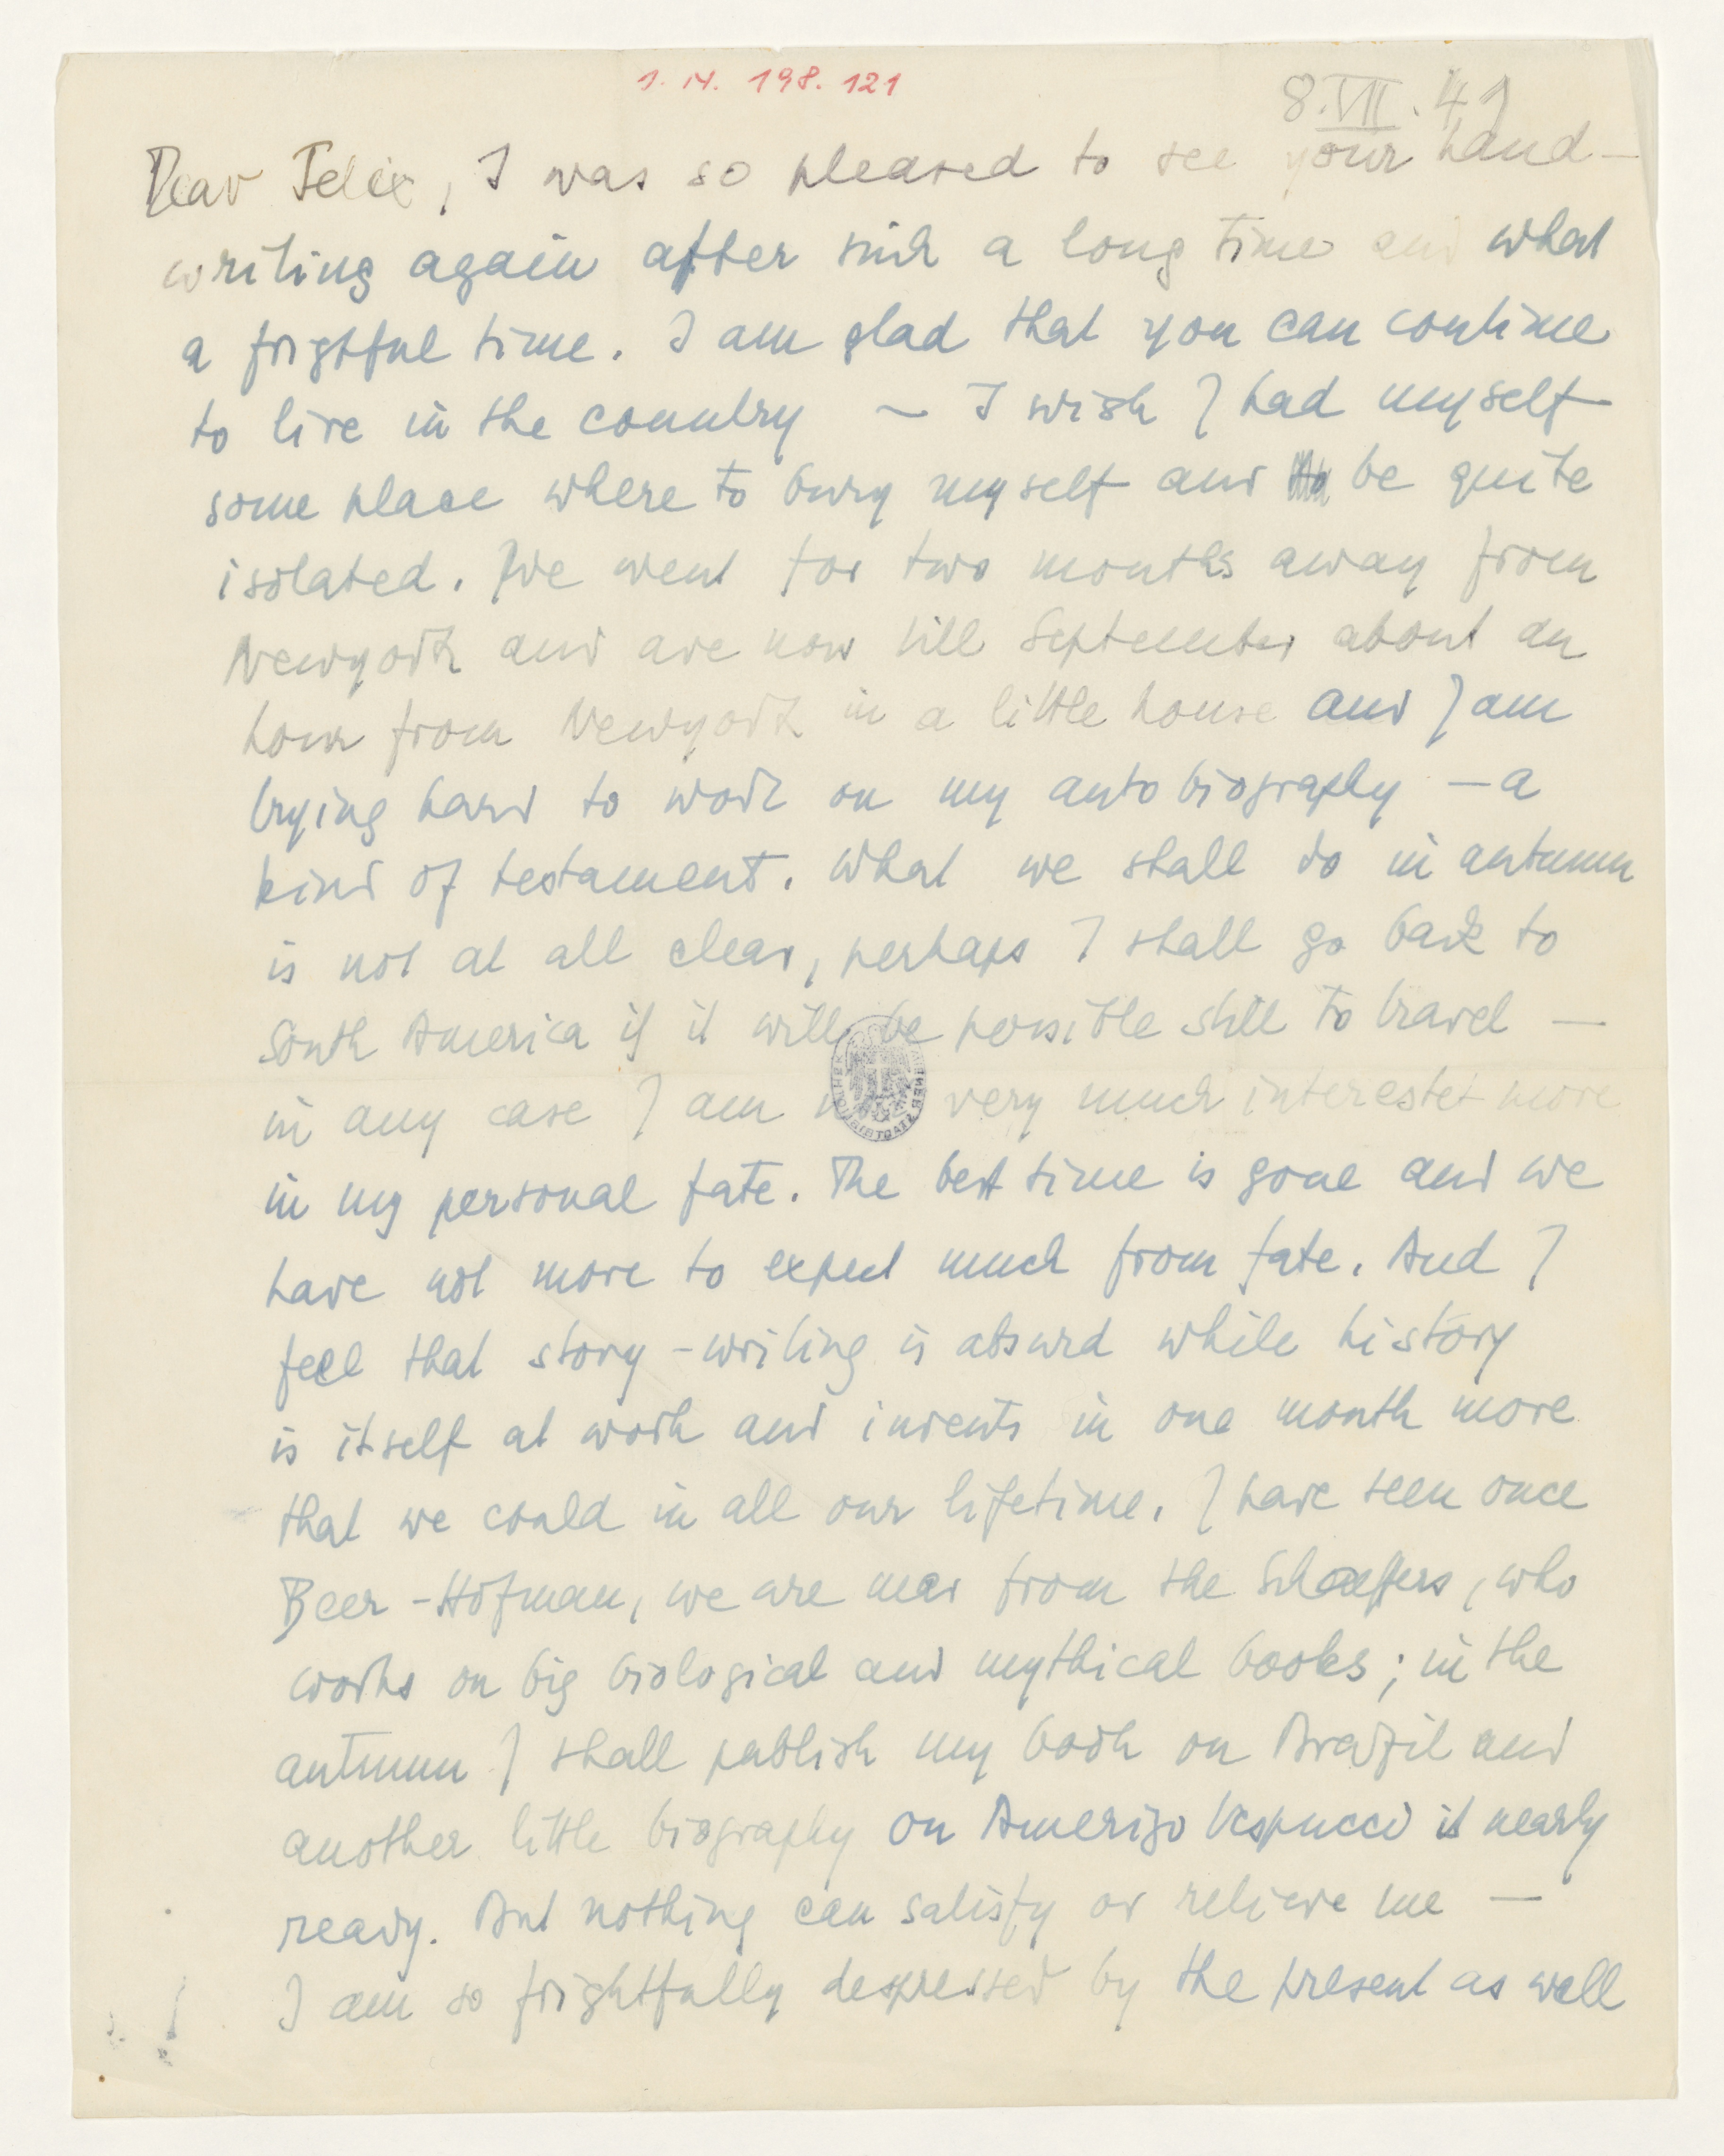 1. N. 198. 121
8.VII.41
Dear Felix, I was so pleased to see your hand-
writing again after such a long time and what
a frightful time. I am glad that you can continue
to live in the country ~ I wish I had myself
some place where to bury myself and to be quite
isolated. We went for two months away from
Newyork and are now till September about an
hour from Newyork in a little house and I am
trying hard to work on my autobiography - a
kind of testament. What we shall do in autumn
is not at all clear, perhaps I shall go back to
South America if it will be possible still to travel -
in any case I am not very much interestet more
in my personal fate. The best time is gone and we
have not more to expect much from fate. And I
feel that story-writing is absurd while history
is itself at work and invents in one month more
that we could in all our lifetime. I have seen once
Beer-Hofman, we are near from the Schaeffers, who
works on big biological and mythical books; in the
autumn I shall publish my book on Brazil and
another little biography on Amerigo Vespucci is nearly
ready. But nothing can satisfy or relieve me -
I am so frightfully depressed by the present as well